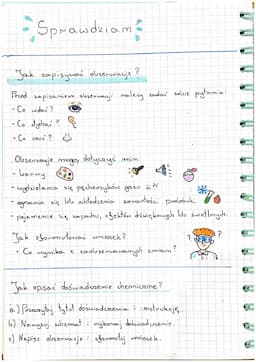 Sprawdziam
Jak zapisywać obserwacje?
Przed zapisaniem obserwacji należy zadać sobie pytania:
- Co widać?
- Co słychać?
- Co czuć?
Obserwacje mogą dotyczyć min:
- barwy
- wydzielania się pęcherzyków gazu
- ogrzania się lub ochłodzenia zawartości probówki
- pojawienie się zapachu, efektów dźwiękowych lub świetlnych.
Jak sformułować wniosek?
- Co wynika z zaobserwowanych zmian?
Jak opisać doświadczenie chemiczne?
a.) Przeczytaj tytuł doświadczenia i instrukcję,
b) Narysuj schemat i wykonaj doświadczenie
c) Napisz obserwacje i sformułuj wniosek.